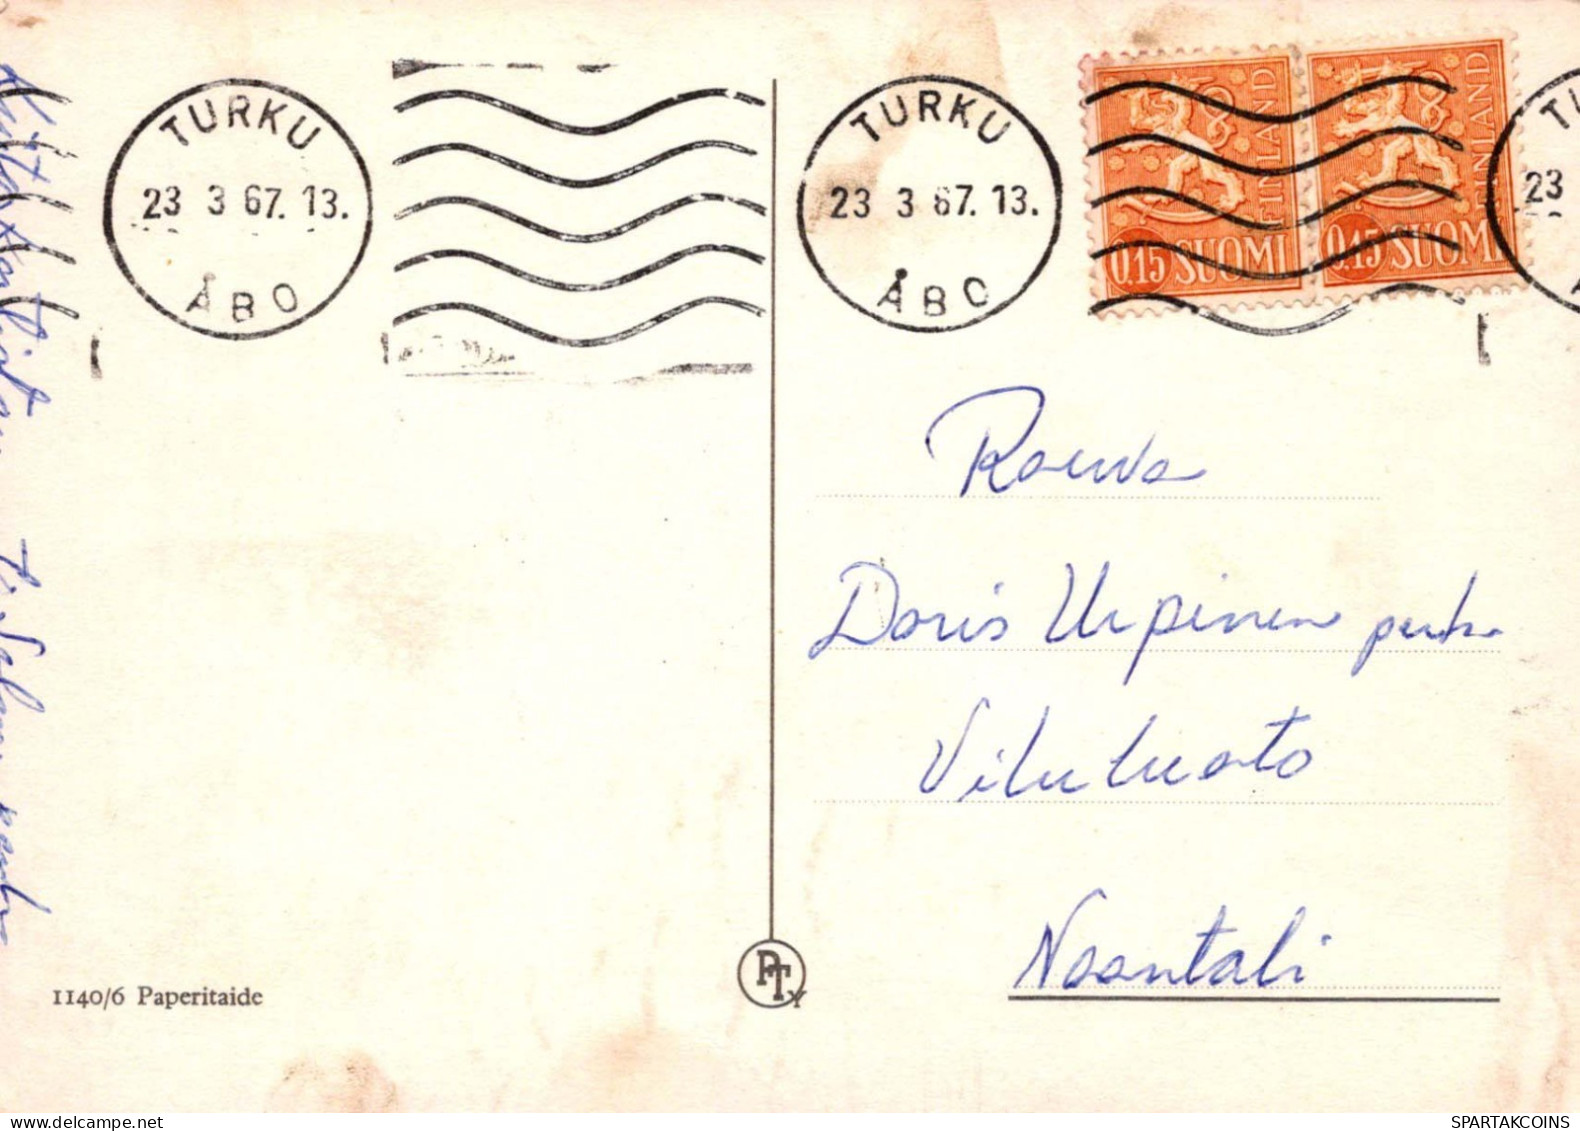 TURKU
23 3 67. 13.
ÅBO
TURKU
23 3 67. 13.
ÅBO
FINLAND
0.15 SUOMI
FINLAND
0.15 SUOMI
23
Rouva
Doris Urpinen
Viluluoto
Naantali
1140/6 Paperitaide
PTY
SPARTAKCOINS
www.delcampe.net